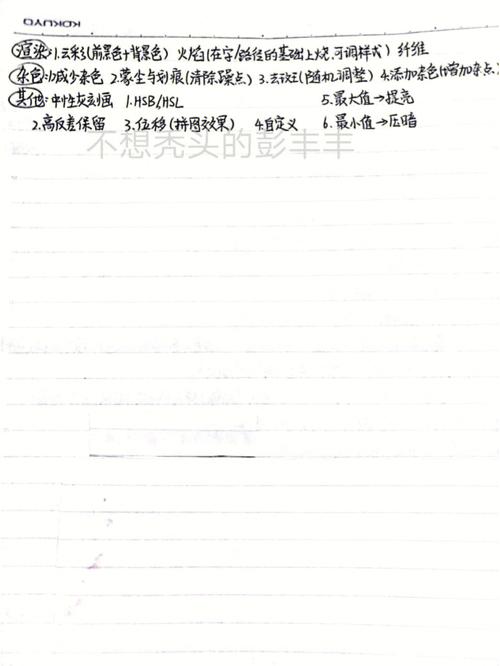 KOKUYO
渲染:1.云彩(前景色+背景色) 火焰(在字/路径的基础上烧.可调样式) 纤维
杂色:1.减少杂色 2.蒙尘与划痕(清除躁点) 3.去斑(随机调整) 4.添加杂色(增加杂点)
其他:中性灰刻画 1.HSB/HSL 5.最大值→提亮
2.高反差保留 3.位移(拼图效果) 4.自定义 6.最小值→压暗
不想秃头的彭丰丰